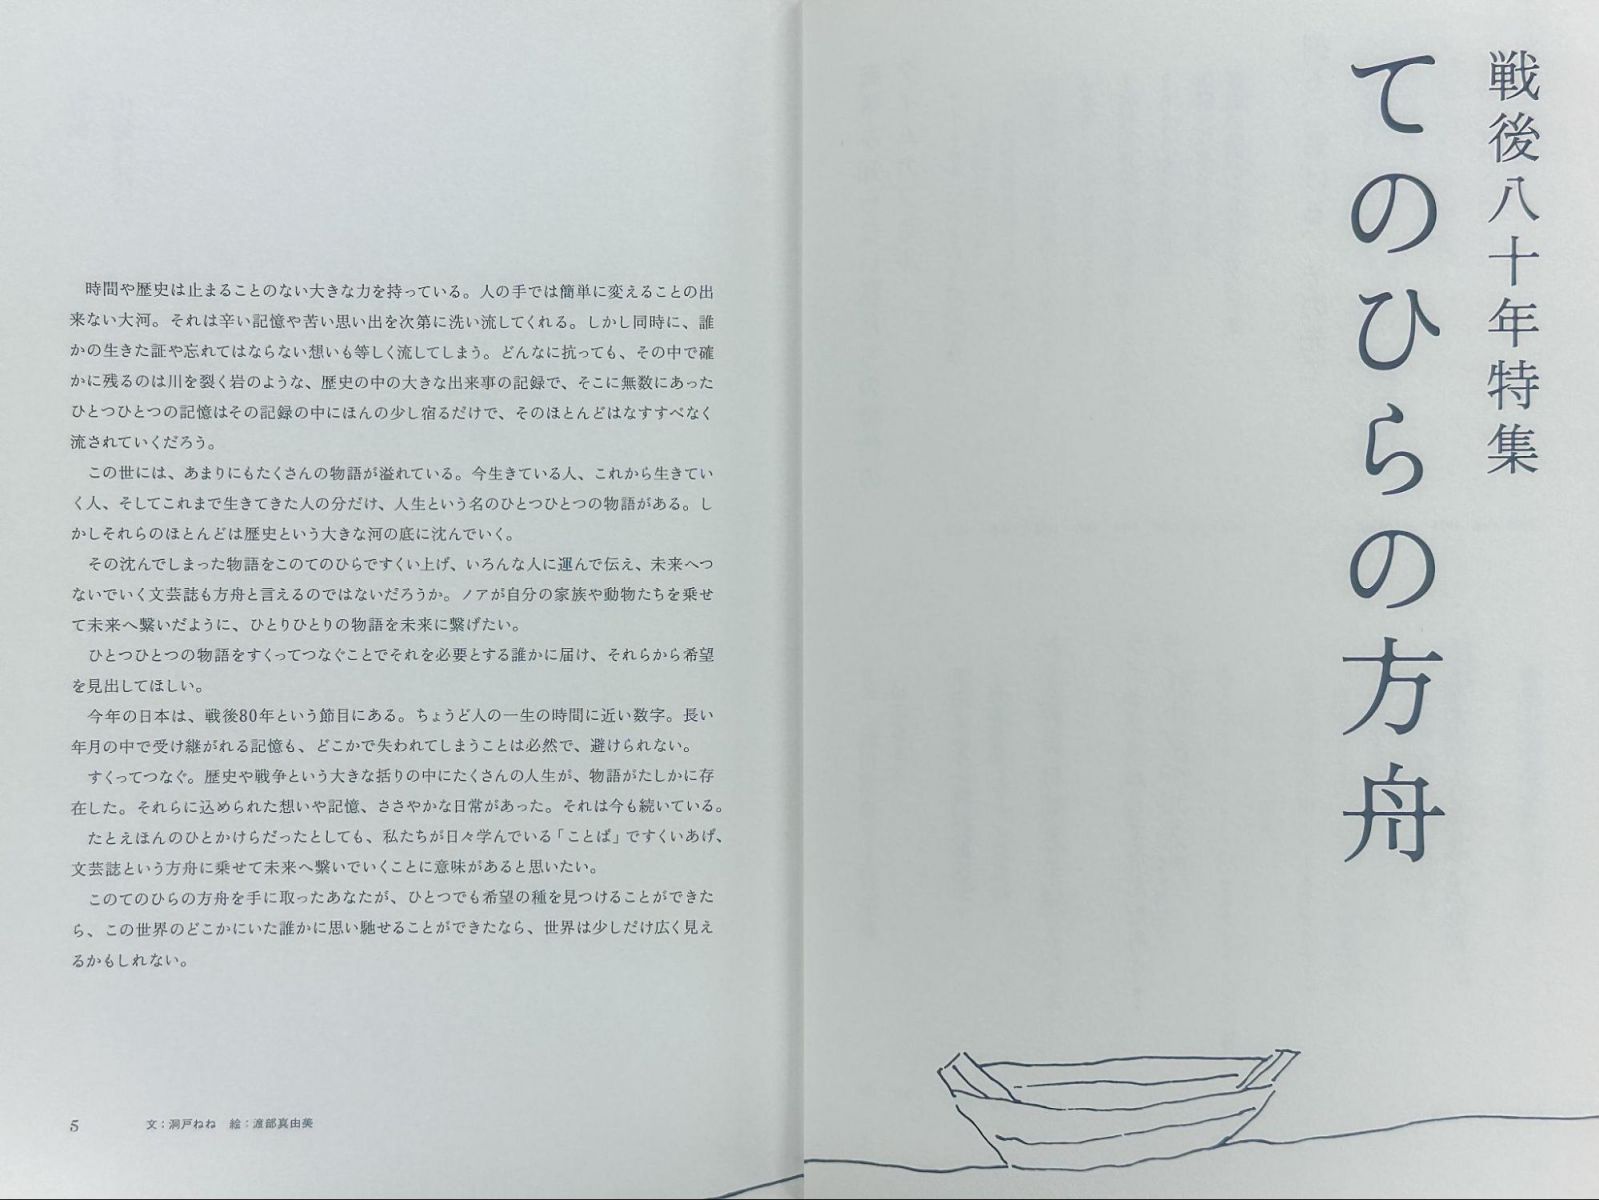 戦後八十年特集
てのひらの方舟
時間や歴史は止まることのない大きな力を持っている。人の手では簡単に変えることの出
来ない大河。それは辛い記憶や苦い思い出を次第に洗い流してくれる。しかし同時に、誰
かの生きた証や忘れてはならない想いも等しく流してしまう。どんなに抗っても、その中で確
かに残るのは川を裂く岩のような、歴史の中の大きな出来事の記録で、そこに無数にあった
ひとつひとつの記憶はその記録の中にほんの少し宿るだけで、そのほとんどはなすすべなく
流されていくだろう。
この世には、あまりにもたくさんの物語が溢れている。今生きている人、これから生きてい
く人、そしてこれまで生きてきた人の分だけ、人生という名のひとつひとつの物語がある。し
かしそれらのほとんどは歴史という大きな河の底に沈んでいく。
その沈んでしまった物語をこのてのひらですくい上げ、いろんな人に運んで伝え、未来へつ
ないでいく文芸誌も方舟と言えるのではないだろうか。ノアが自分の家族や動物たちを乗せ
て未来へ繋いだように、ひとりひとりの物語を未来に繋げたい。
ひとつひとつの物語をすくってつなぐことでそれを必要とする誰かに届け、それらから希望
を見出してほしい。
今年の日本は、戦後80年という節目にある。ちょうど人の一生の時間に近い数字。長い
年月の中で受け継がれる記憶も、どこかで失われてしまうことは必然で、避けられない。
すくってつなぐ。歴史や戦争という大きな括りの中にたくさんの人生が、物語がたしかに存
在した。それらに込められた想いや記憶、ささやかな日常があった。それは今も続いている。
たとえほんのひとかけらだったとしても、私たちが日々学んでいる「ことば」ですくいあげ、
文芸誌という方舟に乗せて未来へ繋いでいくことに意味があると思いたい。
このてのひらの方舟を手に取ったあなたが、ひとつでも希望の種を見つけることができた
ら、この世界のどこかにいた誰かに思い馳せることができたなら、世界は少しだけ広く見え
るかもしれない。
5
文：洞戸ねね　絵：渡部真由美